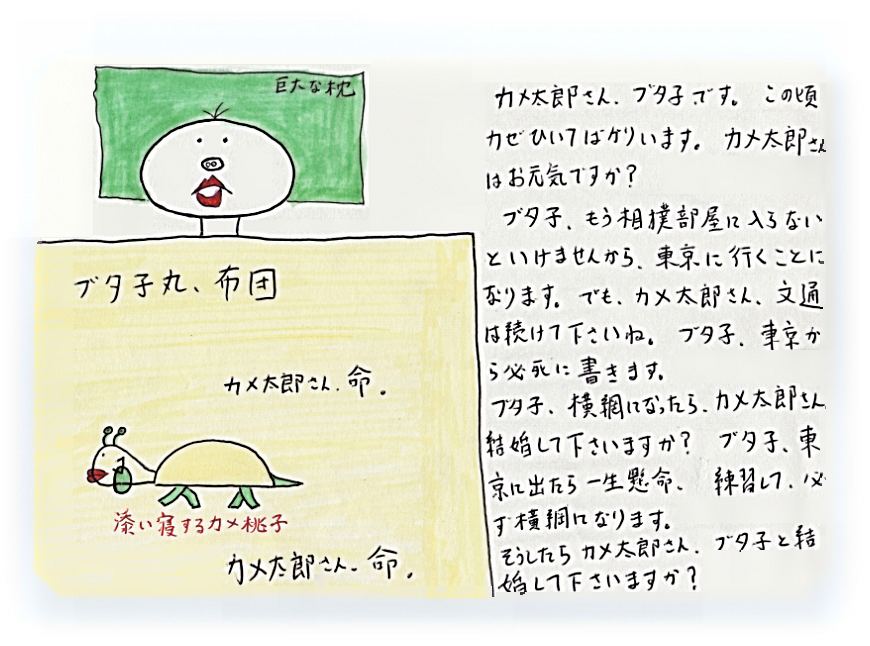 巨大な枕
ブタ子丸、布団
カメ太郎さん、命。
添い寝するカメ桃子
カメ太郎さん、命。
カメ太郎さん、ブタ子です。この頃
カゼひいてばかりいます。カメ太郎さん
はお元気ですか?
ブタ子、もう相撲部屋に入らない
といけませんから、東京に行くことに
なります。でも、カメ太郎さん、文通
は続けて下さいね。ブタ子、東京か
ら必死に書きます。
ブタ子、横綱になったら、カメ太郎さん、
結婚して下さいますか? ブタ子、東
京に出たら一生懸命、練習して、必
ず横綱になります。
そうしたらカメ太郎さん、ブタ子と結
婚して下さいますか?